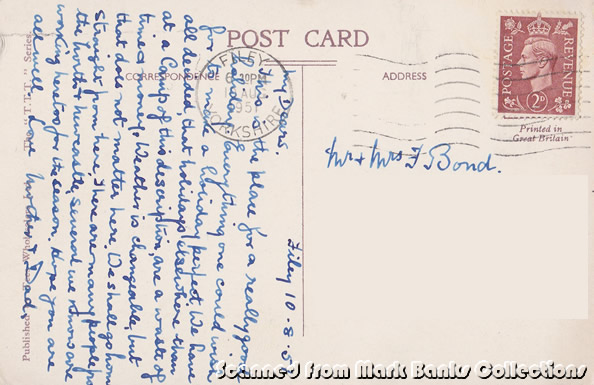 POST CARD
CORRESPONDENCE
ADDRESS
FILEY
30PM
AU
195
YORKSHIRE
POSTAGE
REVENUE
2D
Printed in
Great Britain
Mr & Mrs F Bond.
Filey 10-8-5
My Dears.
This is the place for a really good
holiday. Everything one could wish
for to make a holiday perfect. We have
all decided, that holidays elsewhere than
at a Camp of this description, are a waste of
time & money. Weather is changeable but
that does not matter here. We shall go home
straight from here. There are many people from
the North & Newcastle, several we know are
working here for the season. Hope you are
all well. Love Mother & Dad.
Published
The "E.T.W." Series.
Scanned from Mark Banks Collections